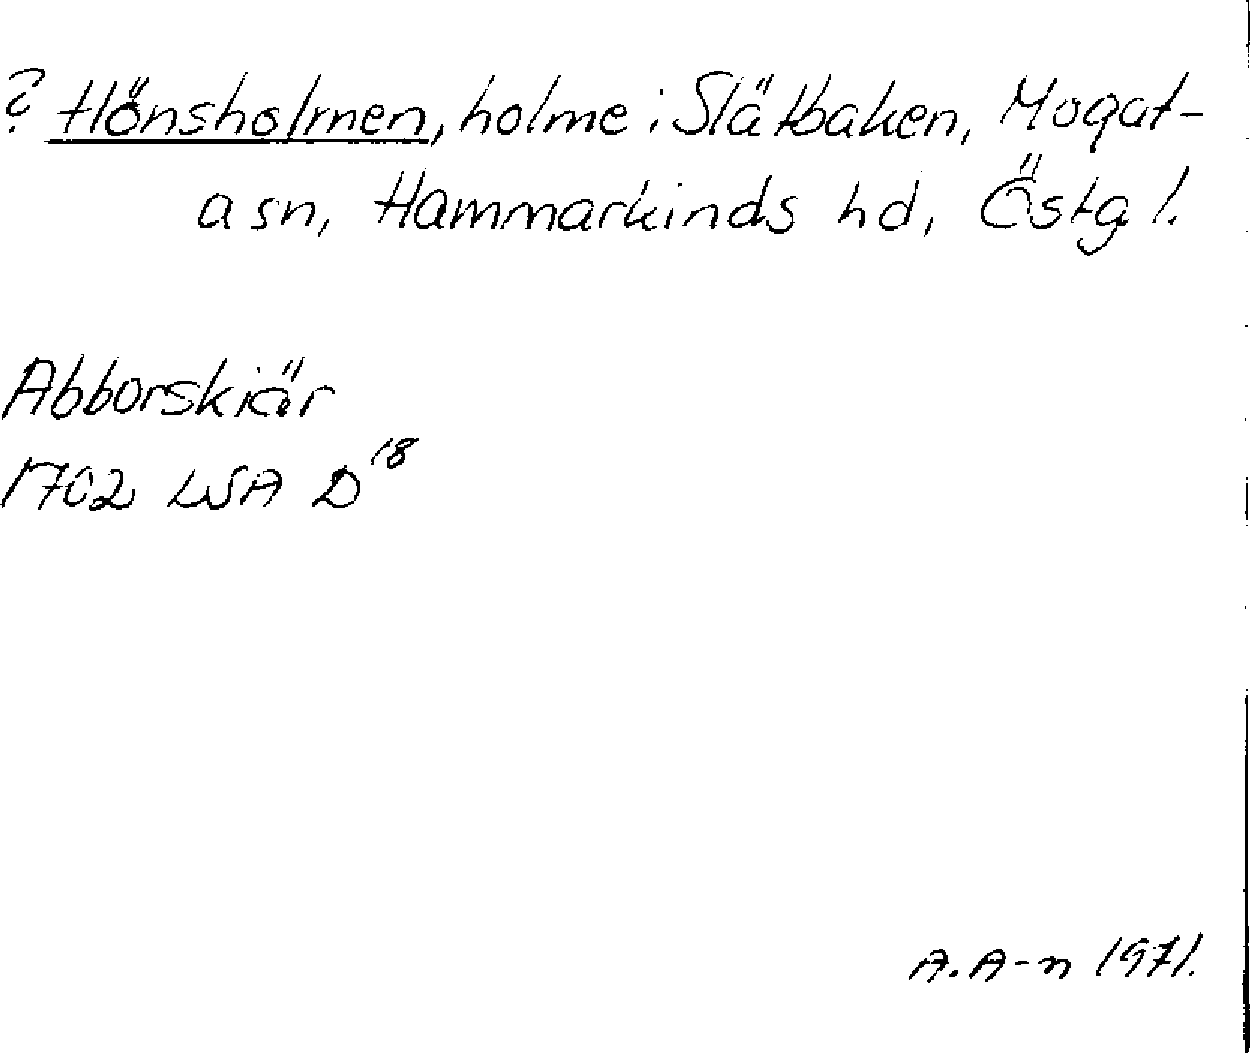 ? Hönsholmen, holme i Slätbaken, Mogat-
a sn, Hammarkinds hd, Östg l.
Abborskiär
1702 LSA D18
A. A-n 1971.